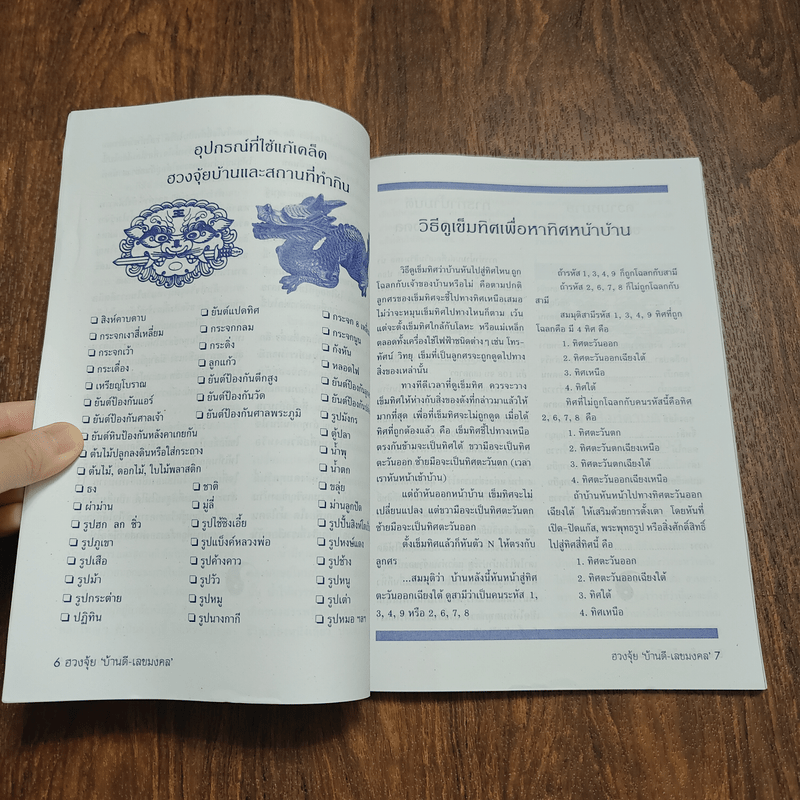 อุปกรณ์ที่ใช้แก้เคล็ด
ฮวงจุ้ยบ้านและสถานที่ทำกิน
❏ สิงห์คาบดาบ
❏ กระจกเงาสี่เหลี่ยม
❏ กระจกเว้า
❏ กระเดื่อง
❏ เหรียญโบราณ
❏ ยันต์ป้องกันแอร์
❏ ยันต์ป้องกันศาลเจ้า
❏ ยันต์หินป้องกันหลังคาเกยกัน
❏ ต้นไม้ปลูกลงดินหรือใส่กระถาง
❏ ต้นไม้, ดอกไม้, ใบไม้พลาสติก
❏ ธง
❏ ผ้าม่าน
❏ รูปฮก ลก ซิ่ว
❏ รูปภูเขา
❏ รูปเสือ
❏ รูปม้า
❏ รูปกระต่าย
❏ ปฏิทิน
❏ ยันต์แปดทิศ
❏ กระจกกลม
❏ กระดิ่ง
❏ ลูกแก้ว
❏ ยันต์ป้องกันตึกสูง
❏ ยันต์ป้องกันวัด
❏ ยันต์ป้องกันศาลพระภูมิ
❏ ชาติ
❏ มู่ลี่
❏ รูปไช้ซิงเอี้ย
❏ รูปแบ็งค์หลวงพ่อ
❏ รูปค้างคาว
❏ รูปวัว
❏ รูปหมู
❏ รูปนางกากี
❏ กระจก 8
❏ กระจกนูน
❏ กังหัน
❏ หลอดไฟ
❏ ยันต์ป้องกัน
❏ ยันต์ป้องกัน
❏ รูปมังกร
❏ ตู้ปลา
❏ น้ำพุ
❏ น้ำตก
❏ ขลุ่ย
❏ ม่านลูกปัด
❏ รูปปั้นสิงห์
❏ รูปหงษ์แดง
❏ รูปช้าง
❏ รูปหนู
❏ รูปเต่า
❏ รูปหมอ
6 ฮวงจุ้ย 'บ้านดี-เลขมงคล'
วิธีดูเข็มทิศเพื่อหาทิศหน้าบ้าน
วิธีดูเข็มทิศว่าบ้านหันไปสู่ทิศไหน ถูก
โฉลกกับเจ้าของบ้านหรือไม่ คือตามปกติ
ลูกศรของเข็มทิศจะชี้ไปทางทิศเหนือเสมอ
ไม่ว่าจะหมุนเข็มทิศไปทางไหนก็ตาม เว้น
แต่จะตั้งเข็มทิศใกล้กับโลหะ หรือแม่เหล็ก
ตลอดทั้งเครื่องใช้ไฟฟ้าชนิดต่างๆ เช่น โทร-
ทัศน์ วิทยุ เข็มที่เป็นลูกศรจะถูกดูดไปทาง
สิ่งของเหล่านั้น
ทางที่ดีเวลาที่ดูเข็มทิศ ควรจะวาง
เข็มทิศให้ห่างกับสิ่งของดังที่กล่าวมาแล้วให้
มากที่สุด เพื่อที่เข็มทิศจะไม่ถูกดูด เมื่อได้
ทิศที่ถูกต้องแล้ว คือ เข็มทิศชี้ไปทางเหนือ
ตรงกันข้ามจะเป็นทิศใต้ ขวามือจะเป็นทิศ
ตะวันออก ซ้ายมือจะเป็นทิศตะวันตก (เวลา
เราหันหน้าเข้าบ้าน)
แต่ถ้าหันออกหน้าบ้าน เข็มทิศจะไม่
เปลี่ยนแปลง แต่ขวามือจะเป็นทิศตะวันตก
ซ้ายมือจะเป็นทิศตะวันออก
ตั้งเข็มทิศแล้วก็หันตัว N ให้ตรงกับ
ลูกศร
...สมมุติว่า บ้านหลังนี้หันหน้าสู่ทิศ
ตะวันออกเฉียงใต้ ดูสามีว่าเป็นคนระหัส 1,
3, 4, 9 หรือ 2, 6, 7, 8
ถ้ารหัส 1, 3, 4, 9 ก็ถูกโฉลกกับสามี
ถ้ารหัส 2, 6, 7, 8 ก็ไม่ถูกโฉลกกับ
สามี
สมมุติสามีรหัส 1, 3, 4, 9 ทิศที่ถูก
โฉลกคือ มี 4 ทิศ คือ
1. ทิศตะวันออก
2. ทิศตะวันออกเฉียงใต้
3. ทิศเหนือ
4. ทิศใต้
ทิศที่ไม่ถูกโฉลกกับคนรหัสนี้คือทิศ
2, 6, 7, 8 คือ
1. ทิศตะวันตก
2. ทิศตะวันตกเฉียงเหนือ
3. ทิศตะวันตกเฉียงใต้
4. ทิศตะวันออกเฉียงเหนือ
ถ้าบ้านหันหน้าไปทางทิศตะวันออก
เฉียงใต้ ให้เสริมด้วยการตั้งเตา โดยหันที่
เปิด-ปิดแก๊ส, พระพุทธรูป หรือสิ่งศักดิ์สิทธิ์
ไปสู่ทิศสี่ทิศนี้ คือ
1. ทิศตะวันออก
2. ทิศตะวันออกเฉียงใต้
3. ทิศใต้
4. ทิศเหนือ
ฮวงจุ้ย 'บ้านดี-เลขมงคล' 7